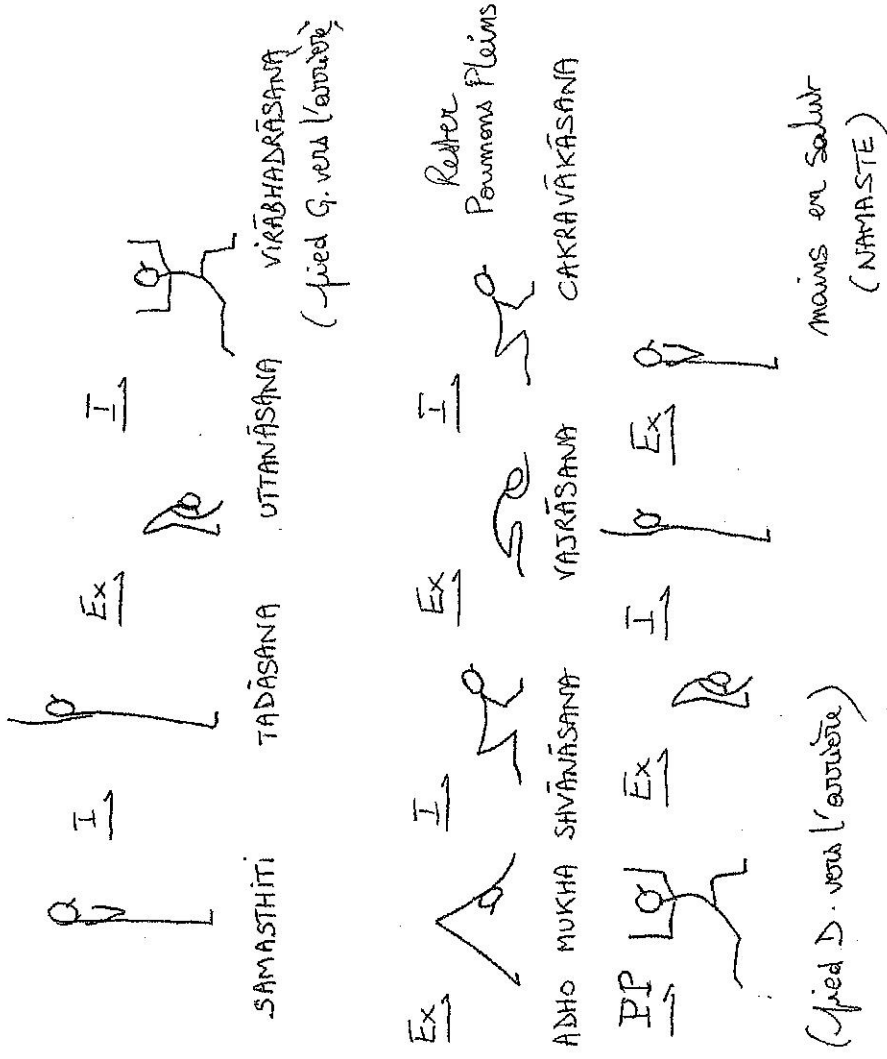 I Ex I
SAMASTHITI TADĀSANA UTTANĀSANA VĪRABHADRĀSANA
(pied G. vers l'arrière)
Ex I Ex I Rester
Poumons Pleins
ADHO MUKHA SHVĀNĀSANA VAJRĀSANA CAKRAVĀKĀSANA
PP Ex I Ex
(pied D. vers l'arrière) mains en Salut
(NAMASTE)